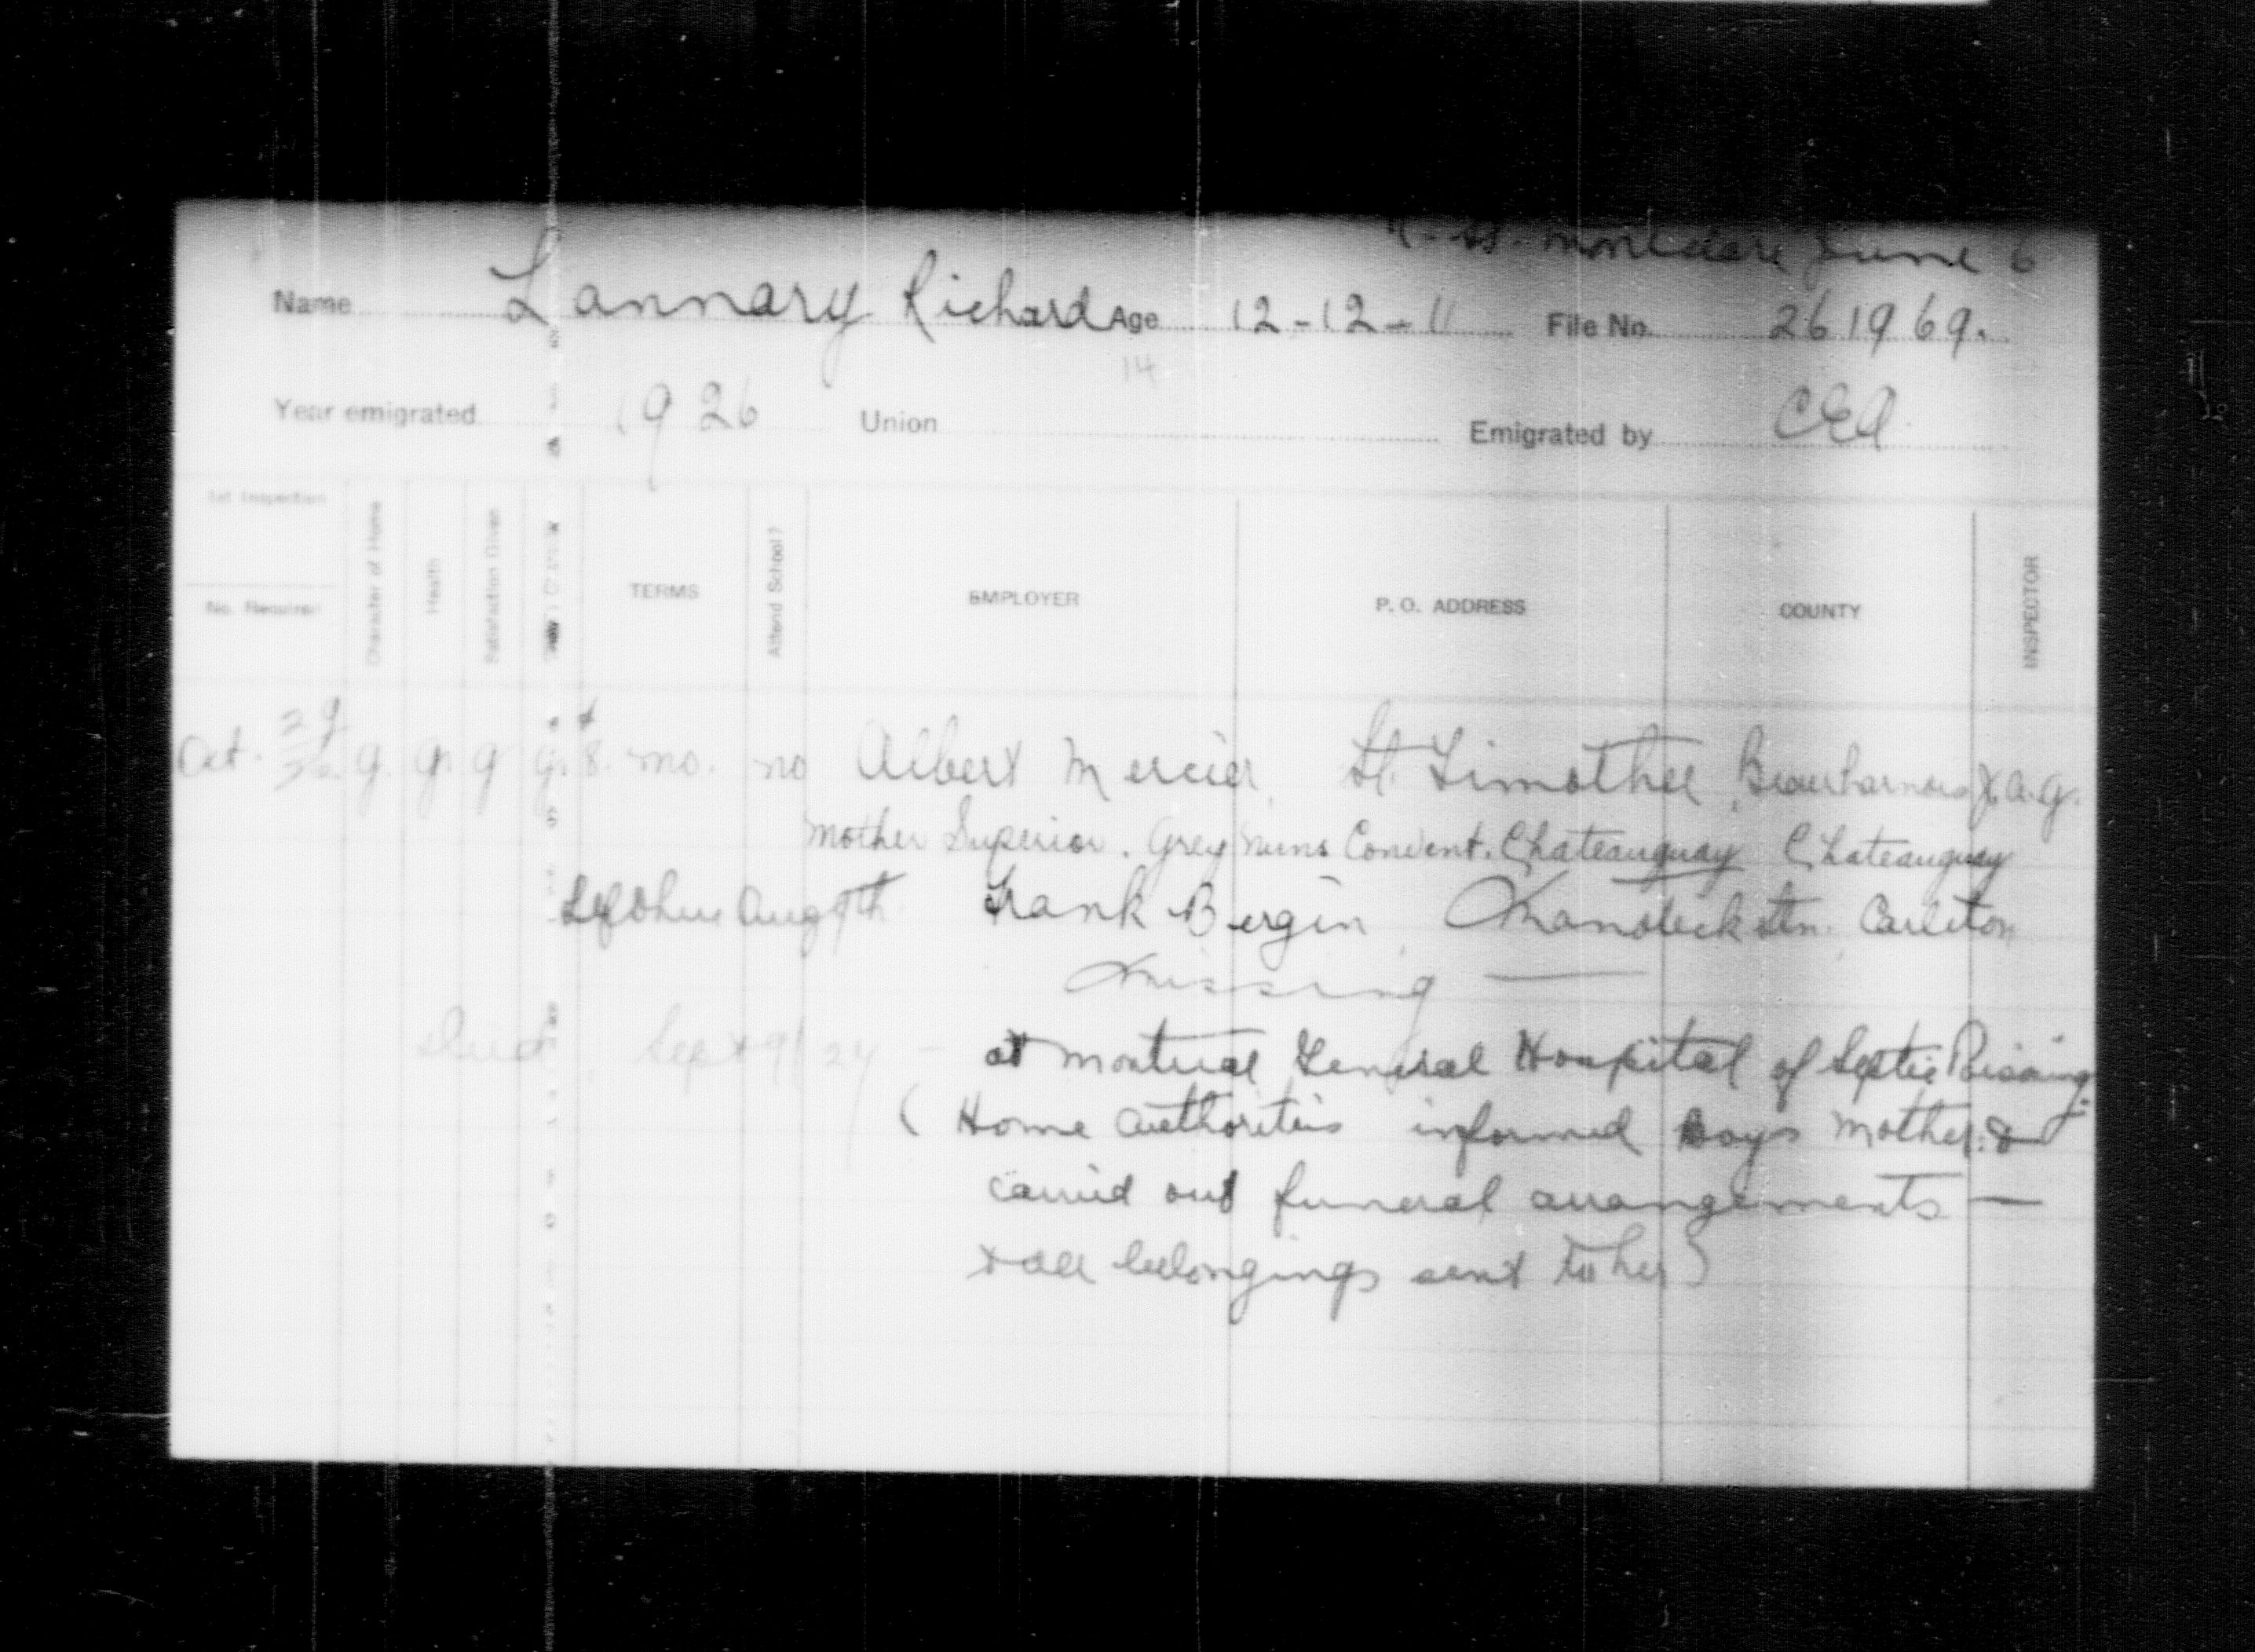 S.S. Montclare June 6
Name Lannary Richard Age 12-12-11 File No. 261969.
14
Year emigrated 1926 Union Emigrated by CEA
1st Inspection
No. Required
Character of Home
Health
Satisfaction Given
TERMS
Attend School?
EMPLOYER
P. O. ADDRESS
COUNTY
INSPECTOR
Oct. 29 g. g. g g. $8. mo. no Albert Mercier, St. Timothee, Beauharnois J.A.G.
26
Mother Superior. Grey Nuns Convent. Chateauguay Chateauguay
Left here Aug 9th Frank Bergin, Stn. Carleton
Missing —
died Sept 9/27 - at Montreal General Hospital of Septic
( Home authorities informed Boys mother &
carried out funeral arrangements —
& all belongings sent to her)